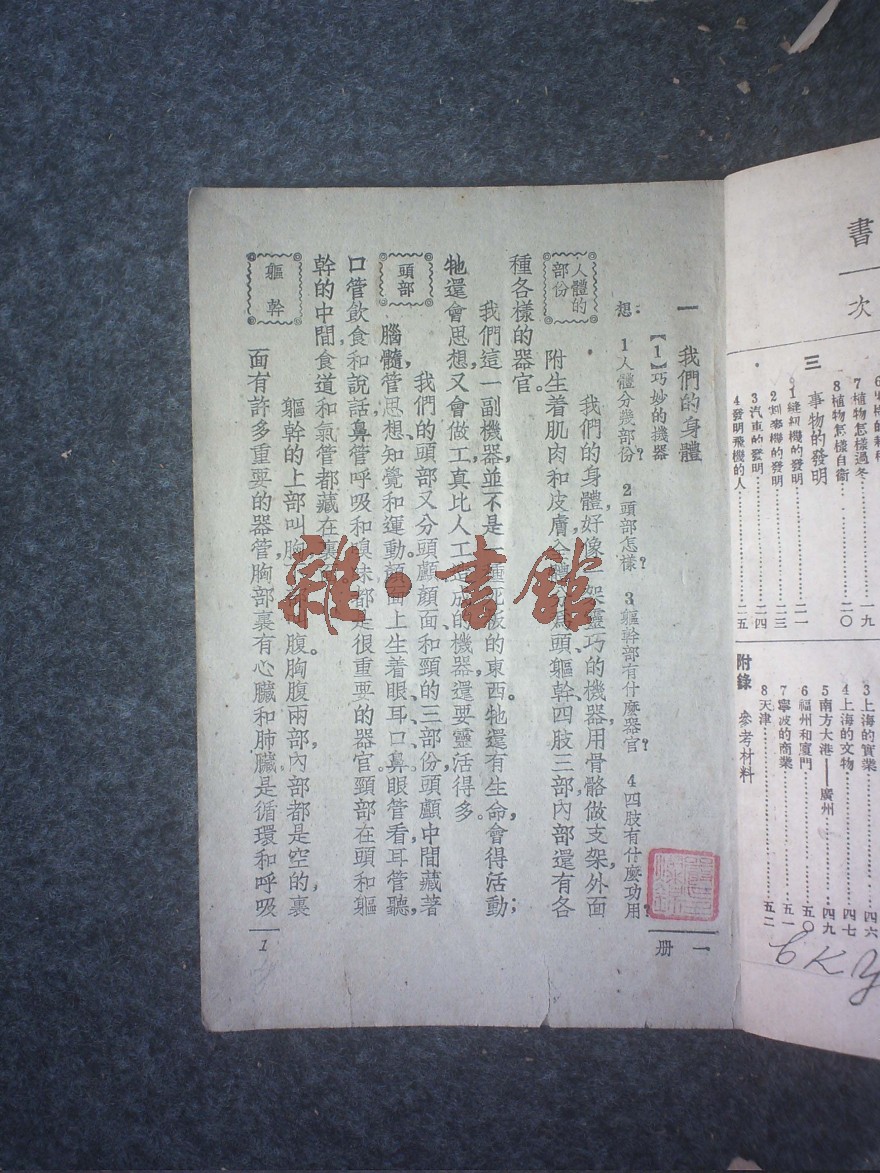 書
次
7 植物怎樣過冬……一九
8 植物怎樣自衛……二〇
三 事物的發明
1 縫紉機的發明……二一
2 割麥機的發明……二三
3 汽車的發明……二四
4 發明飛機的人……二五
3 上海的實業……四六
4 上海的文物……四七
5 南方大港——廣州……四九
6 福州和廈門……五〇
7 寧波的商業……五一
8 天津……五二
附錄 參考材料
一 我們的身體
【1】巧妙的機器
想：1 人體分幾部份？ 2 頭部怎樣？ 3 軀幹部有什麼器官？ 4 四肢有什麼功用？
人體的部份
我們的身體，好像一架靈巧的機器，用骨骼做支架，外面
附生着肌肉和皮膚。全體分為頭、軀幹、四肢三部，內部還有各
種各樣的器官。
我們這一副機器，並不是一種死板的東西。牠還有生命，會得活動；
牠還會思想，又會做工，真比人工造成的機器還要靈活得多。
頭部
我們的頭部又分頭顱、顏面和頸的三部份，頭顱中間藏著
腦髓，管思想、知覺和運動。顏面上生着眼、耳、口、鼻。眼管看，耳管聽，
口管飲食和說話，鼻管呼吸和嗅味，都是很重要的器官。頸部在頭和軀
幹的中間，食道和氣管都藏在裏
軀幹
軀幹的上部叫胸 腹。胸腹兩部，內部都是空的，裏
面有許多重要的器管，胸部裏有心臟和肺臟，是循環和呼吸
一冊
1
雜·書館
6KY